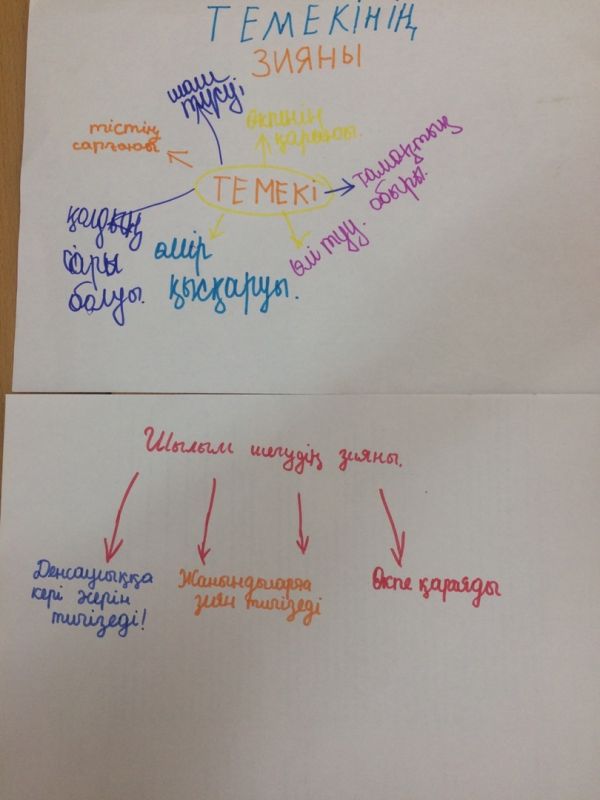 ТЕМЕКІНІҢ
ЗИЯНЫ
шаш
түсуі,
өкпенің
қараюы.
тістің
сарғаюы
ТЕМЕКІ
тамақтың
обыры.
қолдың
сары
болуы.
өмір
қысқаруы.
өлі туу.
Шылым шегудің зияны.
Денсаулыққа
кері әсерін
тигізеді!
Жанындыларға
зиян тигізеді
Өкпе қараяды